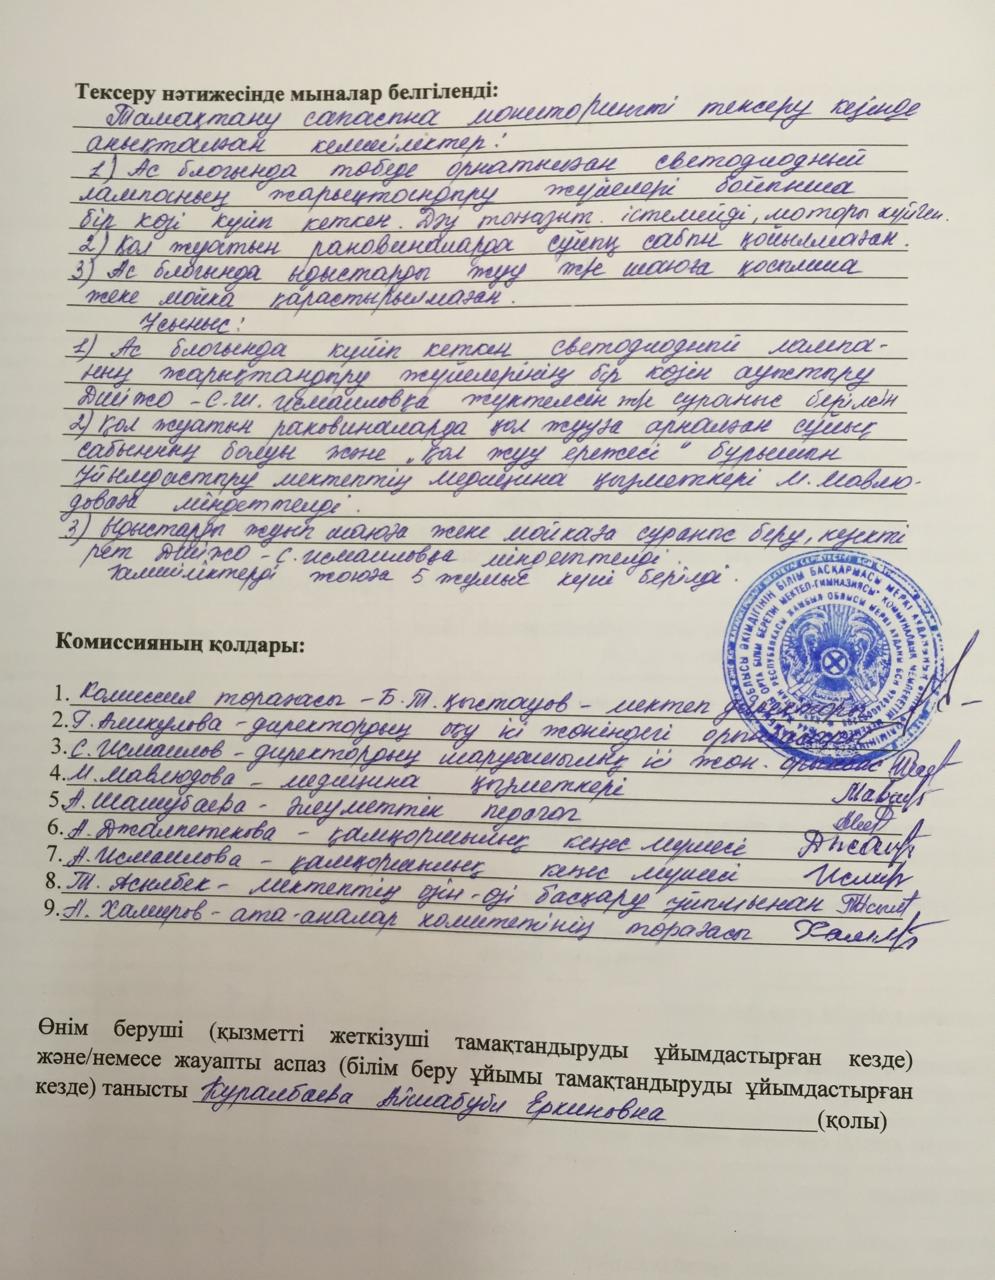 Тексеру нәтижесінде мыналар белгіленді:
Тамақтану сапасына мониторингті тексеру кезінде
анықталған кемшіліктер:
1) Ас блогында төбеде орнатылған светодиодный
лампаның жарықтандыру жүйелері бойынша
бір көзі күйіп кеткен. тоңазыт. істемейді, моторы күйген.
2) Қол жуатын раковиналарда сұйық сабын қойылмаған.
3) Ас блогында ыдыстарды жуу және шаюға қосымша
жеке мойка қарастырылмаған.
Ұсыныс:
1) Ас блогында күйіп кеткен светодиодный лампа-
ның жарықтандыру жүйелерінің бір көзін ауыстыру
ДШІЖО - С.Ш. Исмаиловқа жүктелсін және сұраныс берілсін
2) Қол жуатын раковиналарда қол жууға арналған сұйық
сабынның болуы және "Қол жуу ережесі" бұрышын
ұйымдастыру мектептің медицина қызметкері М. Мавлю-
доваға міндеттелді.
3) Ыдыстарды жуып шаюға жеке мойкаға сұраныс беру, кезекті
рет ДШІЖО - С. Исмаиловқа міндеттелді
Кемшіліктерді жоюға 5 жұмыс күні берілді.
Комиссияның қолдары:
1. Комиссия төрағасы - Б.Т. Қыстауов - мектеп директоры
2. Г. Ашкулова - директордың оқу ісі жөніндегі орынбасары
3. С. Исмаилов - директордың шаруашылық ісі жөн. орынбас
4. М. Мавлюдова - медицина қызметкері
5. А. Шашубаева - әлеуметтік педагог
6. А. Джалпетекова - қамқоршылық кеңес мүшесі
7. А. Исмаилова - қамқоршылық кеңес мүшесі
8. Т. Асылбек - мектептің өзін-өзі басқару ұйымынан
9. А. Хамиров - ата-аналар комитетінің төрағасы
Өнім беруші (қызметті жеткізуші тамақтандыруды ұйымдастырған кезде)
және/немесе жауапты аспаз (білім беру ұйымы тамақтандыруды ұйымдастырған
кезде) танысты Куралбаева Айшабуби Еркиновна (қолы)